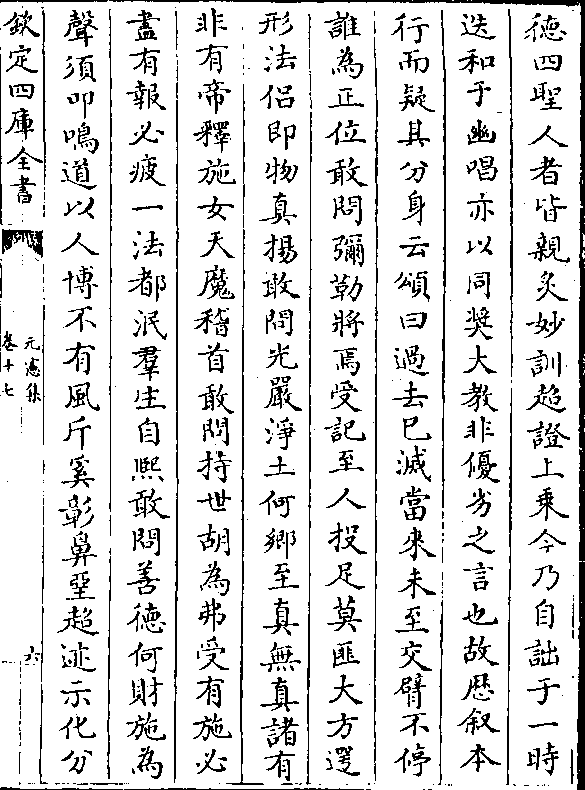 德四聖人者皆親炙妙訓超證上乘今乃自詘于一時
迭和于幽唱亦以同奬大教非優劣之言也故歴叙本
行而疑其分身云頌曰過去已滅當來未至交臂不停
誰為正位敢問彌勒將焉受記至人投足莫匪大方遌
形法侣即物真揚敢問光嚴淨土何鄉至真無真諸有
非有帝釋施女天魔稽首敢問持世胡為弗受有施必
盡有報必疲一法都泯羣生自熈敢問善德何財施為
聲須叩鳴道以人博不有風斤奚彰鼻堊超迹示化分
欽定四庫全書
元憲集
卷十七
六